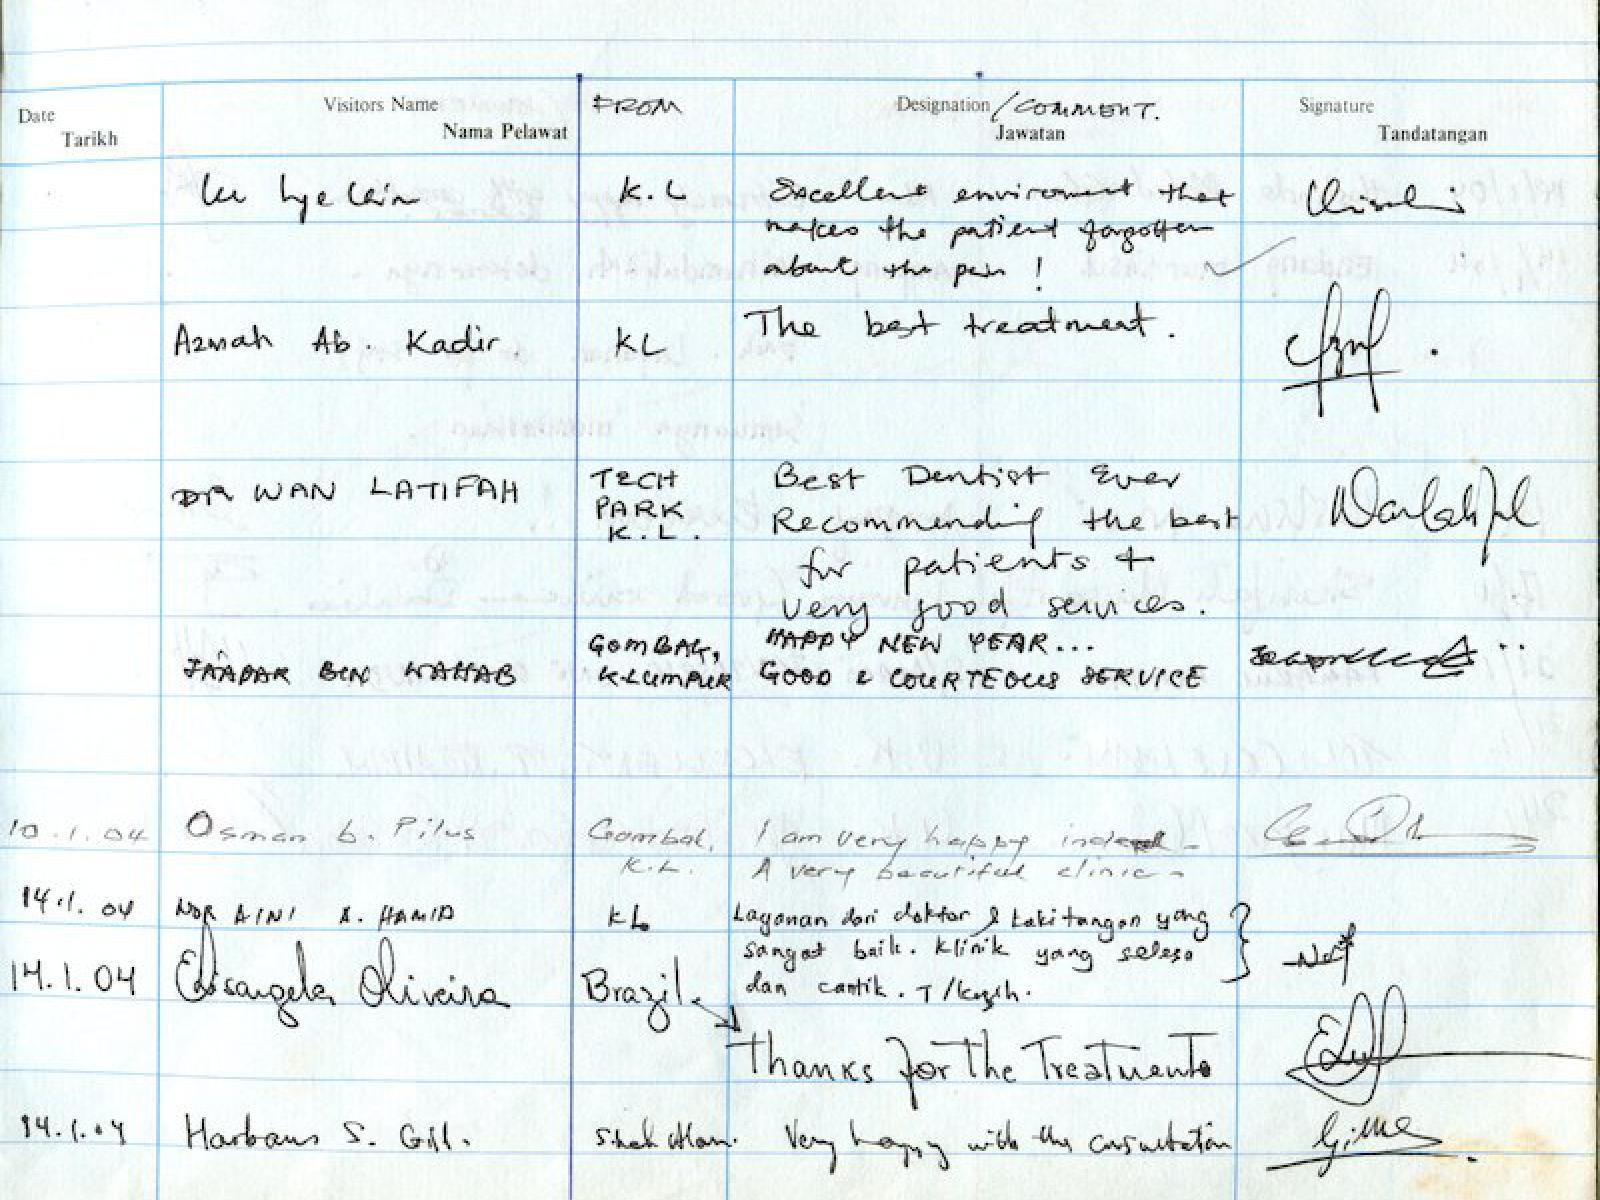 Date Visitors Name FROM Designation /COMMENT. Signature
Tarikh Nama Pelawat Jawatan Tandatangan
K.L Excellent enviroment that
makes the patient forgotten
about the pain !
Azmah Ab. Kadir KL The best treatment.
DR WAN LATIFAH TECH Best Dentist Ever
PARK Recommending the best
K.L. for patients +
very good services.
GOMBAK, HAPPY NEW YEAR...
JAAPAR BIN WAHAB K-LUMPUR GOOD & COURTEOUS SERVICE
10.1.04 Osman b. Pilus Gombak, I am very happy indeed -
K.L. A very beautiful clinic -
14.1.04 NOR AINI A. HAMID KL Layanan dari doktor & kakitangan yang
sangat baik. Klinik yang selesa
dan cantik. T/kasih.
14.1.04 Elisangela Oliveira Brazil.
Thanks for The Treatments
14.1.04 Harbans S. Gill. Shah Alam. Very happy with the consultation